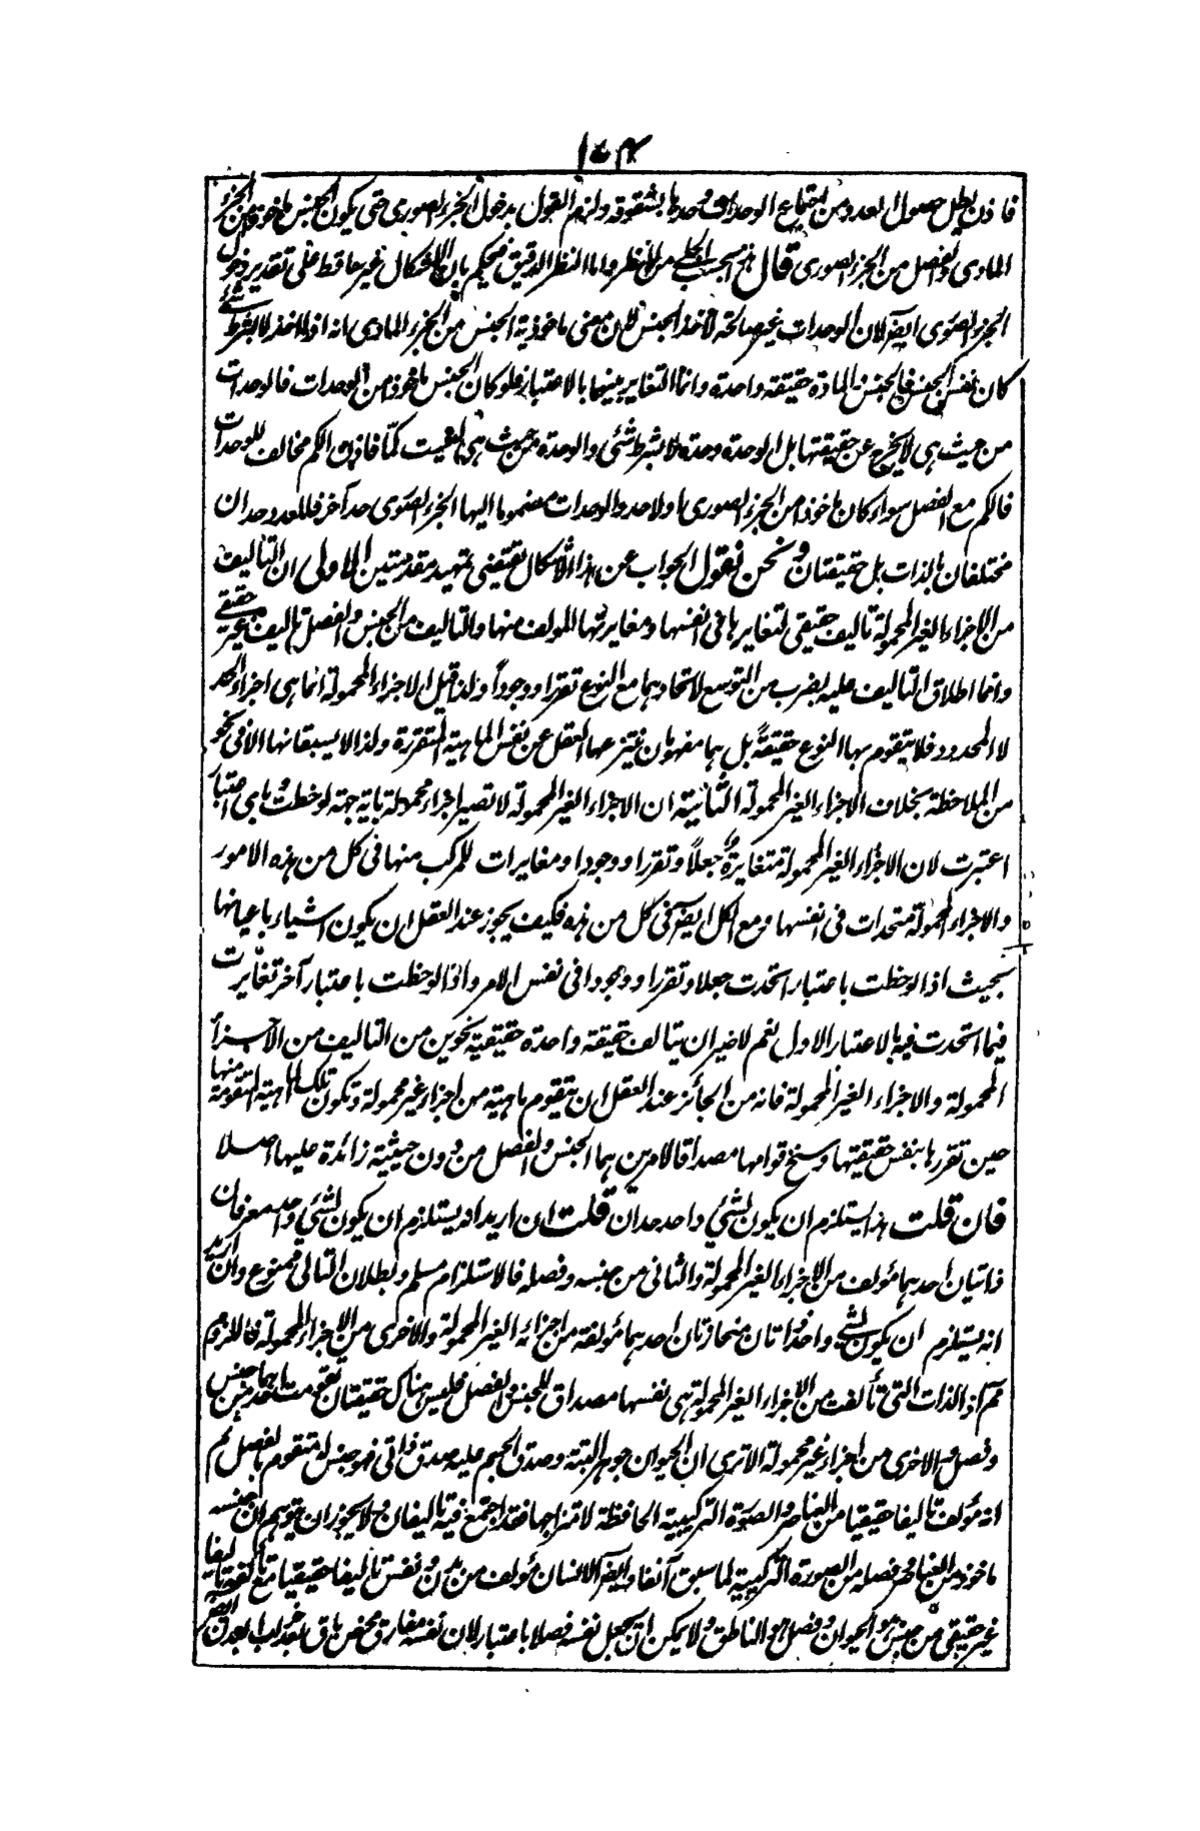 ١٥٤
فاذن بطل حصول العدد من اجتماع الوحدات وحدها بشقوقه ولزم القول بدخول الجزء الصوري حتى يكون الجنس ماخوذا من الجزء
المادي والفصل من الجزء الصوري قال هذا بحسب الجلي من النظر واما النظر الدقيق فيحكم بان الاشكال غير ساقط على تقدير دخول
الجزء الصوري ايضا لان الوحدات غير صالحة لاخذ الجنس لان معنى ماخوذية الجنس من الجزء المادي انه اذا اخذ لا بشرط شئ
كان نفس الجنس فالجنس المادة حقيقة واحدة وانما التغاير بينهما بالاعتبار فلو كان الجنس ماخوذا من الوحدات فالوحدات
من حيث هي لا يخرج عن حقيقتها بل الوحدة وحدة لا بشرط شئ والوحدة من حيث هي ليست كما فاذن الكم مخالف للوحدات
فالكم مع الفصل سواء كان ماخوذا من الجزء الصوري او لا حد والوحدات مضموما اليها الجزء الصوري حد آخر فللعدد حدان
مختلفان بالذات بل حقيقتان ونحن نقول الجواب عن هذا الاشكال يقتضي تمهيد مقدمتين الاولى ان التاليف
من الاجزاء الغير المحمولة تاليف حقيقي لتغايرها في انفسها ومغايرتها للمولف منها والتاليف من الجنس والفصل تاليف غير حقيقي
وانما اطلاق التاليف عليه بضرب من التوسع لاتحادهما مع النوع تقررا ووجودا ولذا قيل الاجزاء المحمولة انما هي اجزاء الحد
لا المحدود فلا يتقوم بها النوع حقيقة بل هما مفهومان ينتزعهما العقل عن نفس الماهية المتقررة ولذا لا يسبقانها الا في نحو
من الملاحظة بخلاف الاجزاء الغير المحمولة الثانية ان الاجزاء الغير المحمولة لا تصير اجزاء محمولة باية جهة لوحظت وباي اعتبار
اعتبرت لان الاجزاء الغير المحمولة متغايرة جعلا وتقررا ووجودا ومغايرات للمركب منها في كل من هذه الامور
والاجزاء المحمولة متحدات في انفسها ومع الكل ايضا في كل من هذه فكيف يجوز عند العقل ان يكون اشياء باعيانها
بحيث اذا لوحظت باعتبار اتحدت جعلا وتقررا ووجودا في نفس الامر واذا لوحظت باعتبار آخر تغايرت
فيما اتحدت فيه بالاعتبار الاول نعم لا ضير ان يتالف حقيقة واحدة حقيقية بنحوين من التاليف من الاجزاء
المحمولة والاجزاء الغير المحمولة فانه من الجائز عند العقل ان يتقوم ماهية من اجزاء غير محمولة وتكون تلك الماهية المتقومة منها
حين تقررها بنفس حقيقتها وسنخ قوامها مصداقا لامرين هما الجنس والفصل من دون حيثية زائدة عليها اصلا
فان قلت هذا يستلزم ان يكون لشئ واحد حدان قلت ان اريد انه يستلزم ان يكون لشئ واحد معرفان
ذاتيان احدهما مؤلف من الاجزاء الغير المحمولة والثاني من جنسه وفصله فالاستلزام مسلم وبطلان التالي ممنوع وان اريد
انه يستلزم ان يكون لشئ واحد ذاتان منحازتان احدهما مؤلفة من اجزائه الغير المحمولة والاخرى من الاجزاء المحمولة فاللزوم
مم اذ الذات التي تألفت من الاجزاء الغير المحمولة هي نفسها مصداق للجنس والفصل فليس هناك حقيقتان تقومت احدهما من جنس
وفصل والاخرى من اجزاء غير محمولة الا ترى ان الحيوان جوهر البتة وصدق الجسم عليه صدق ذاتي فهو جنس له متقوم بالفصل ثم
انه مؤلف تاليفا حقيقيا من العناصر والصورة التركيبية الحافظة لامتزاجها فقد اجتمع فيه تاليفان ولا يجوز ان يتوهم ان جنسه
ماخوذ من العناصر وفصله من الصورة التركيبية لما سبق آنفا وايضا الانسان مؤلف من بدن ونفس تاليفا حقيقيا مع تالفه تاليفا
غير حقيقي من جنس هو الحيوان وفصل هو الناطق ولا يمكن ان يجعل نفسه فصلا باعتبار لان نفسه مفارق محض باق بعد خراب البدن